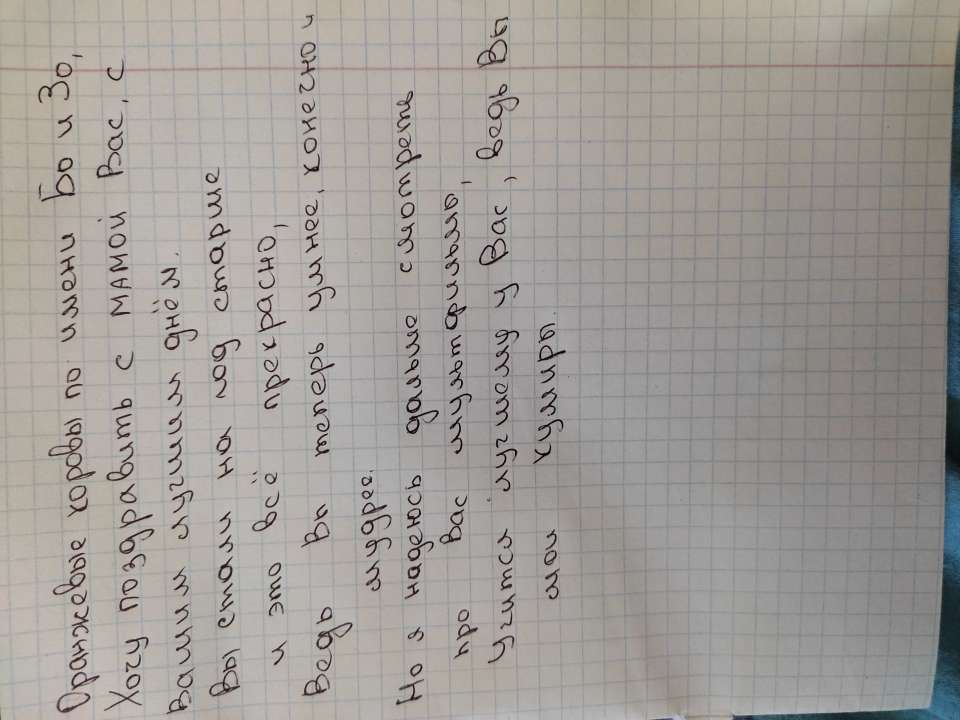 Оранжевые коровы по имени Бо и Зо,
Хочу поздравить с мамой Вас, с
Вашим лучшим днём.
Вы стали на год старше
и это всё прекрасно,
Ведь Вы теперь умнее, конечно и
мудрее.
Но я надеюсь дальше смотреть
про Вас мультфильмы,
Учится лучшему у Вас, ведь Вы
мои кумиры.